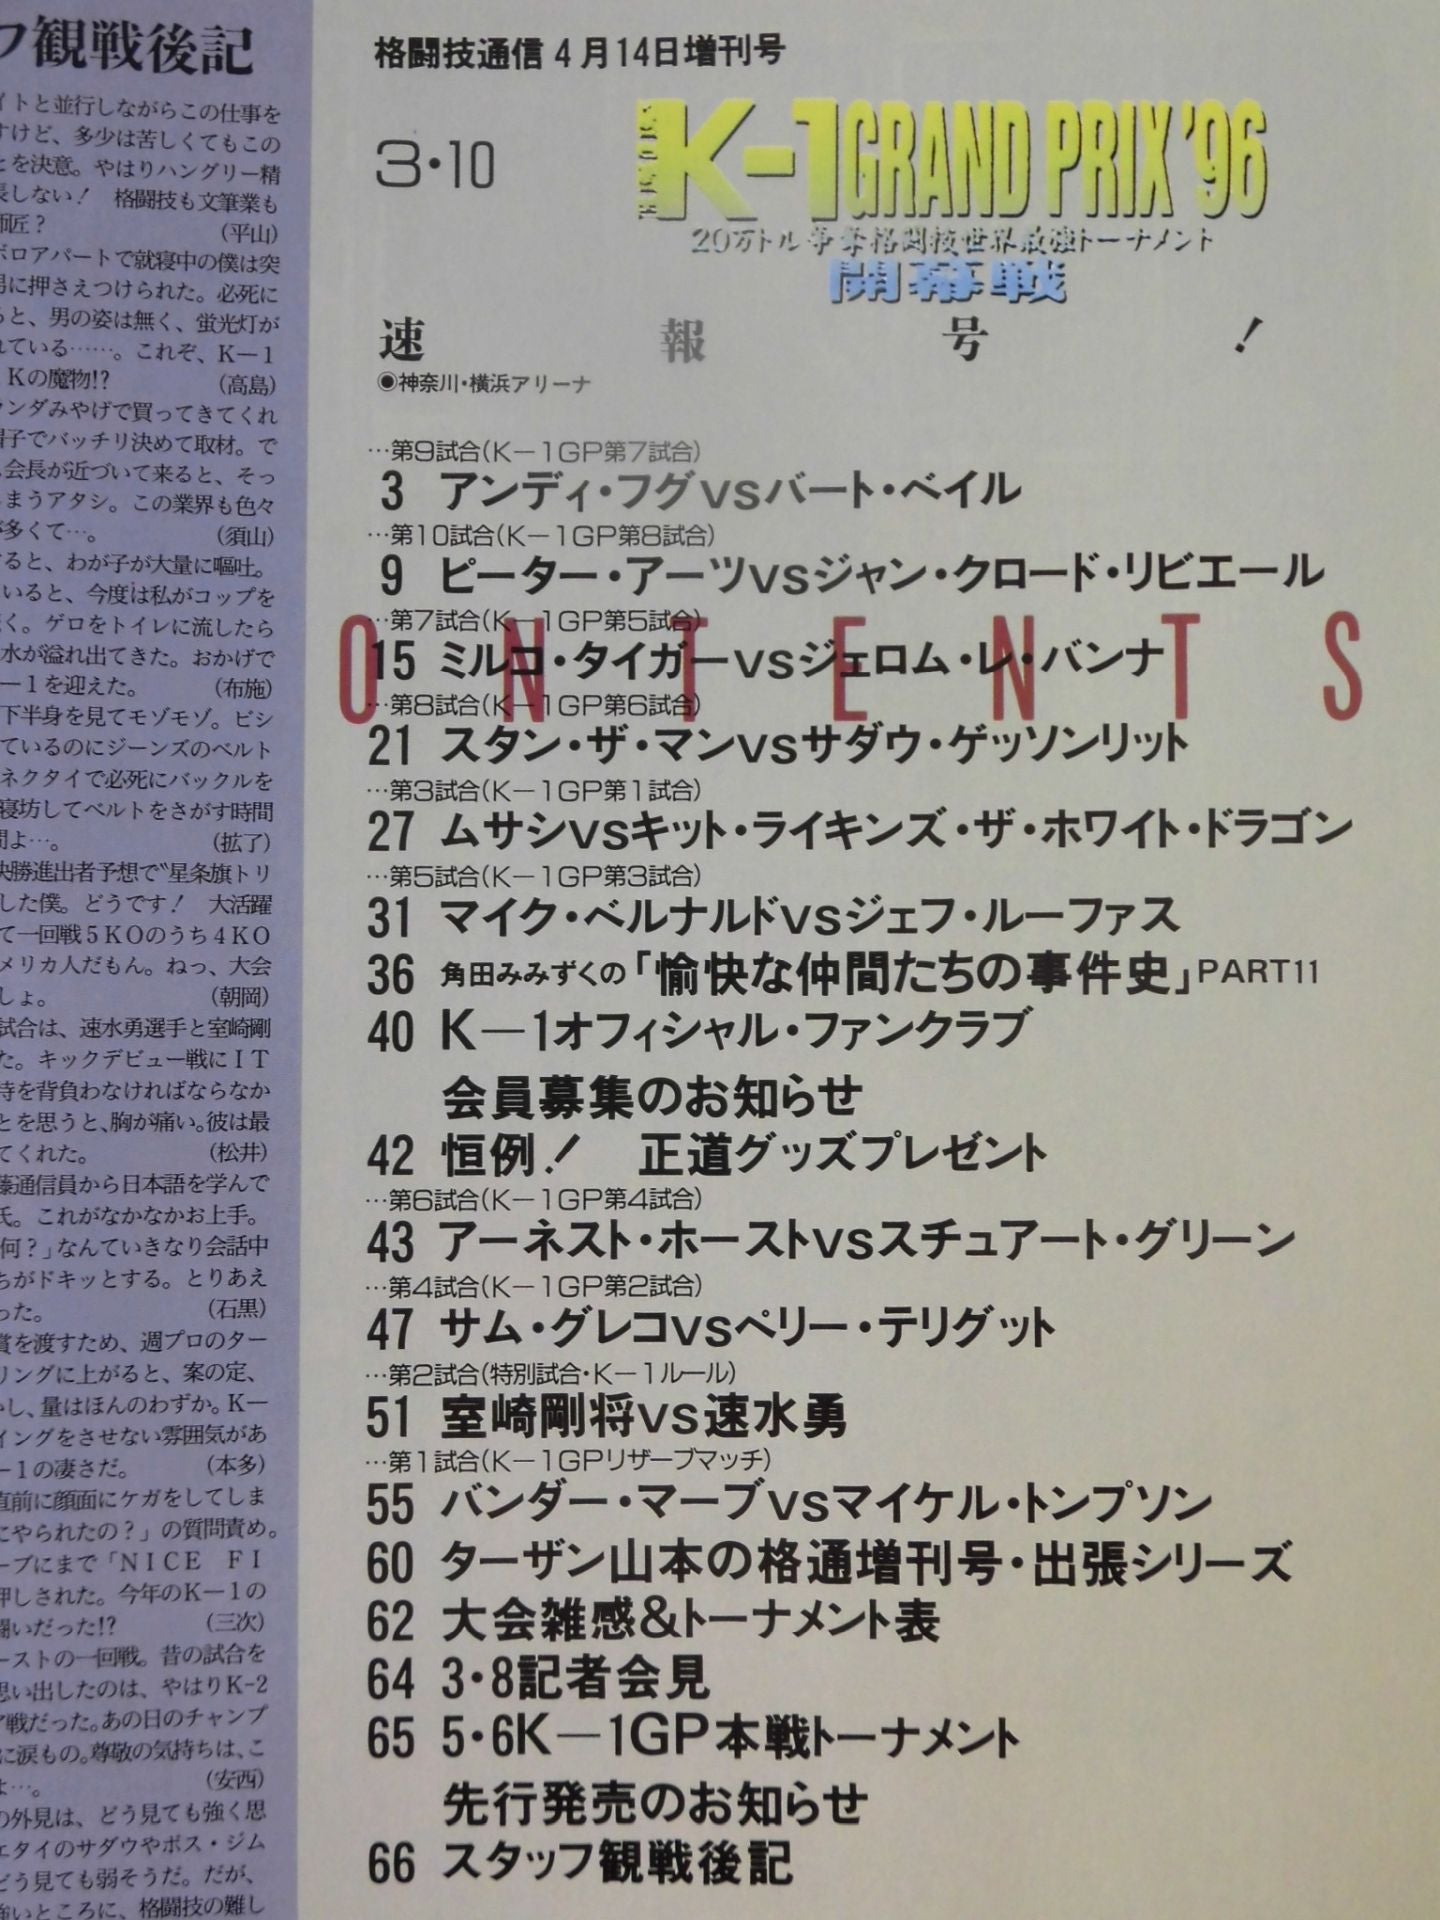 フ観戦後記
イトと並行しながらこの仕事を
すけど、多少は苦しくてもこの
とを決意。やはりハングリー精
長しない! 格闘技も文筆業も
師匠? (平山)
ボロアパートで就寝中の僕は突
男に押さえつけられた。必死に
ると、男の姿は無く、蛍光灯が
れている……。これぞ、K―1
Kの魔物!? (高島)
ランダみやげで買ってきてくれ
帽子でバッチリ決めて取材。で
会長が近づいて来ると、そっ
まうアタシ。この業界も色々
多くて…。 (須山)
すると、わが子が大量に嘔吐。
いると、今度は私がコップを
く。ゲロをトイレに流したら
水が溢れ出てきた。おかげで
ー1を迎えた。 (布施)
下半身を見てモゾモゾ。ビシ
ているのにジーンズのベルト
ネクタイで必死にバックルを
寝坊してベルトをさがす時間
間よ…。 (拡了)
決勝進出者予想で"星条旗トリ
した僕。どうです! 大活躍
て一回戦5KOのうち4KO
メリカ人だもん。ねっ、大会
しょ。 (朝岡)
試合は、速水勇選手と室崎剛
た。キックデビュー戦にIT
待を背負わなければならなか
とを思うと、胸が痛い。彼は最
てくれた。 (松井)
藤通信員から日本語を学んで
氏。これがなかなかお上手。
何?」なんていきなり会話中
ちがドキッとする。とりあえ
った。 (石黒)
賞を渡すため、週プロのター
リングに上がると、案の定、
かし、量はほんのわずか。K―
イングをさせない雰囲気があ
―1の凄さだ。 (本多)
直前に顔面にケガをしてしま
にやられたの?」の質問責め。
ーブにまで「NICE FI
押しされた。今年のK―1の
闘いだった!? (三次)
ーストの一回戦。昔の試合を
思い出したのは、やはりK-2
ア戦だった。あの日のチャンプ
に涙もの。尊敬の気持ちは、こ
よ…。 (安西)
の外見は、どう見ても強く思
ェタイのサダウやボス・ジム
どう見ても弱そうだ。だが、
強いところに、格闘技の難し
格闘技通信4月14日増刊号
3・10
K-1 GRAND PRIX '96
20万ドル争奪格闘技世界最強トーナメント
開幕戦
速報号!
◉神奈川・横浜アリーナ
ONTENTS
…第9試合(K―1GP第7試合)
3 アンディ・フグvsバート・ベイル
…第10試合(K―1GP第8試合)
9 ピーター・アーツvsジャン・クロード・リビエール
…第7試合(K―1GP第5試合)
15 ミルコ・タイガーvsジェロム・レ・バンナ
…第8試合(K―1GP第6試合)
21 スタン・ザ・マンvsサダウ・ゲッソンリット
…第3試合(K―1GP第1試合)
27 ムサシvsキット・ライキンズ・ザ・ホワイト・ドラゴン
…第5試合(K―1GP第3試合)
31 マイク・ベルナルドvsジェフ・ルーファス
36 角田みみずくの「愉快な仲間たちの事件史」PART11
40 K―1オフィシャル・ファンクラブ
会員募集のお知らせ
42 恒例! 正道グッズプレゼント
…第6試合(K―1GP第4試合)
43 アーネスト・ホーストvsスチュアート・グリーン
…第4試合(K―1GP第2試合)
47 サム・グレコvsペリー・テリグット
…第2試合(特別試合・K―1ルール)
51 室崎剛将vs速水勇
…第1試合(K―1GPリザーブマッチ)
55 バンダー・マーブvsマイケル・トンプソン
60 ターザン山本の格通増刊号・出張シリーズ
62 大会雑感&トーナメント表
64 3・8記者会見
65 5・6K―1GP本戦トーナメント
先行発売のお知らせ
66 スタッフ観戦後記